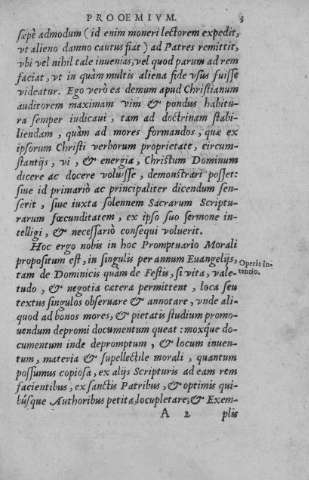 PROOEMIVM. 3
sæpè admodum (id enim moneri lectorem expedit,
vt alieno damno cautus fiat) ad Patres remittit,
vbi vel nihil tale inuenias, vel quod parum ad rem
faciat, vt in quàm multis aliena fide vsus fuisse
videatur. Ego verò ea demum apud Christianum
auditorem maximam vim & pondus habitu-
ra semper iudicaui, tam ad doctrinam stabi-
liendam, quàm ad mores formandos, quæ ex
ipsorum Christi verborum proprietate, circum-
stantijs, vi, & energia, Christum Dominum
dicere ac docere voluisse, demonstrari posset:
siue id primariò ac principaliter dicendum sen-
serit, siue iuxta solennem Sacrarum Scriptu-
rarum fœcunditatem, ex ipso suo sermone in-
telligi, & necessariò consequi voluerit.
Hoc ergo nobis in hoc Promptuario Morali
propositum est, in singulis per annum Euangelijs,
tam de Dominicis quàm de Festis, si vita, vale-
tudo, & negotia cætera permittent, loca seu
textus singulos obseruare & annotare, vnde ali-
quod ad bonos mores, & pietatis studium promo-
uendum depromi documentum queat: moxque do-
cumentum inde depromptum, & locum inuen-
tum, materia & supellectile morali, quantum
possumus copiosa, ex alijs Scripturis ad eam rem
facientibus, ex sanctis Patribus, & optimis qui-
búsque Authoribus petita, locupletare; & Exem-
A 2 plis
Operis In-
tentio.